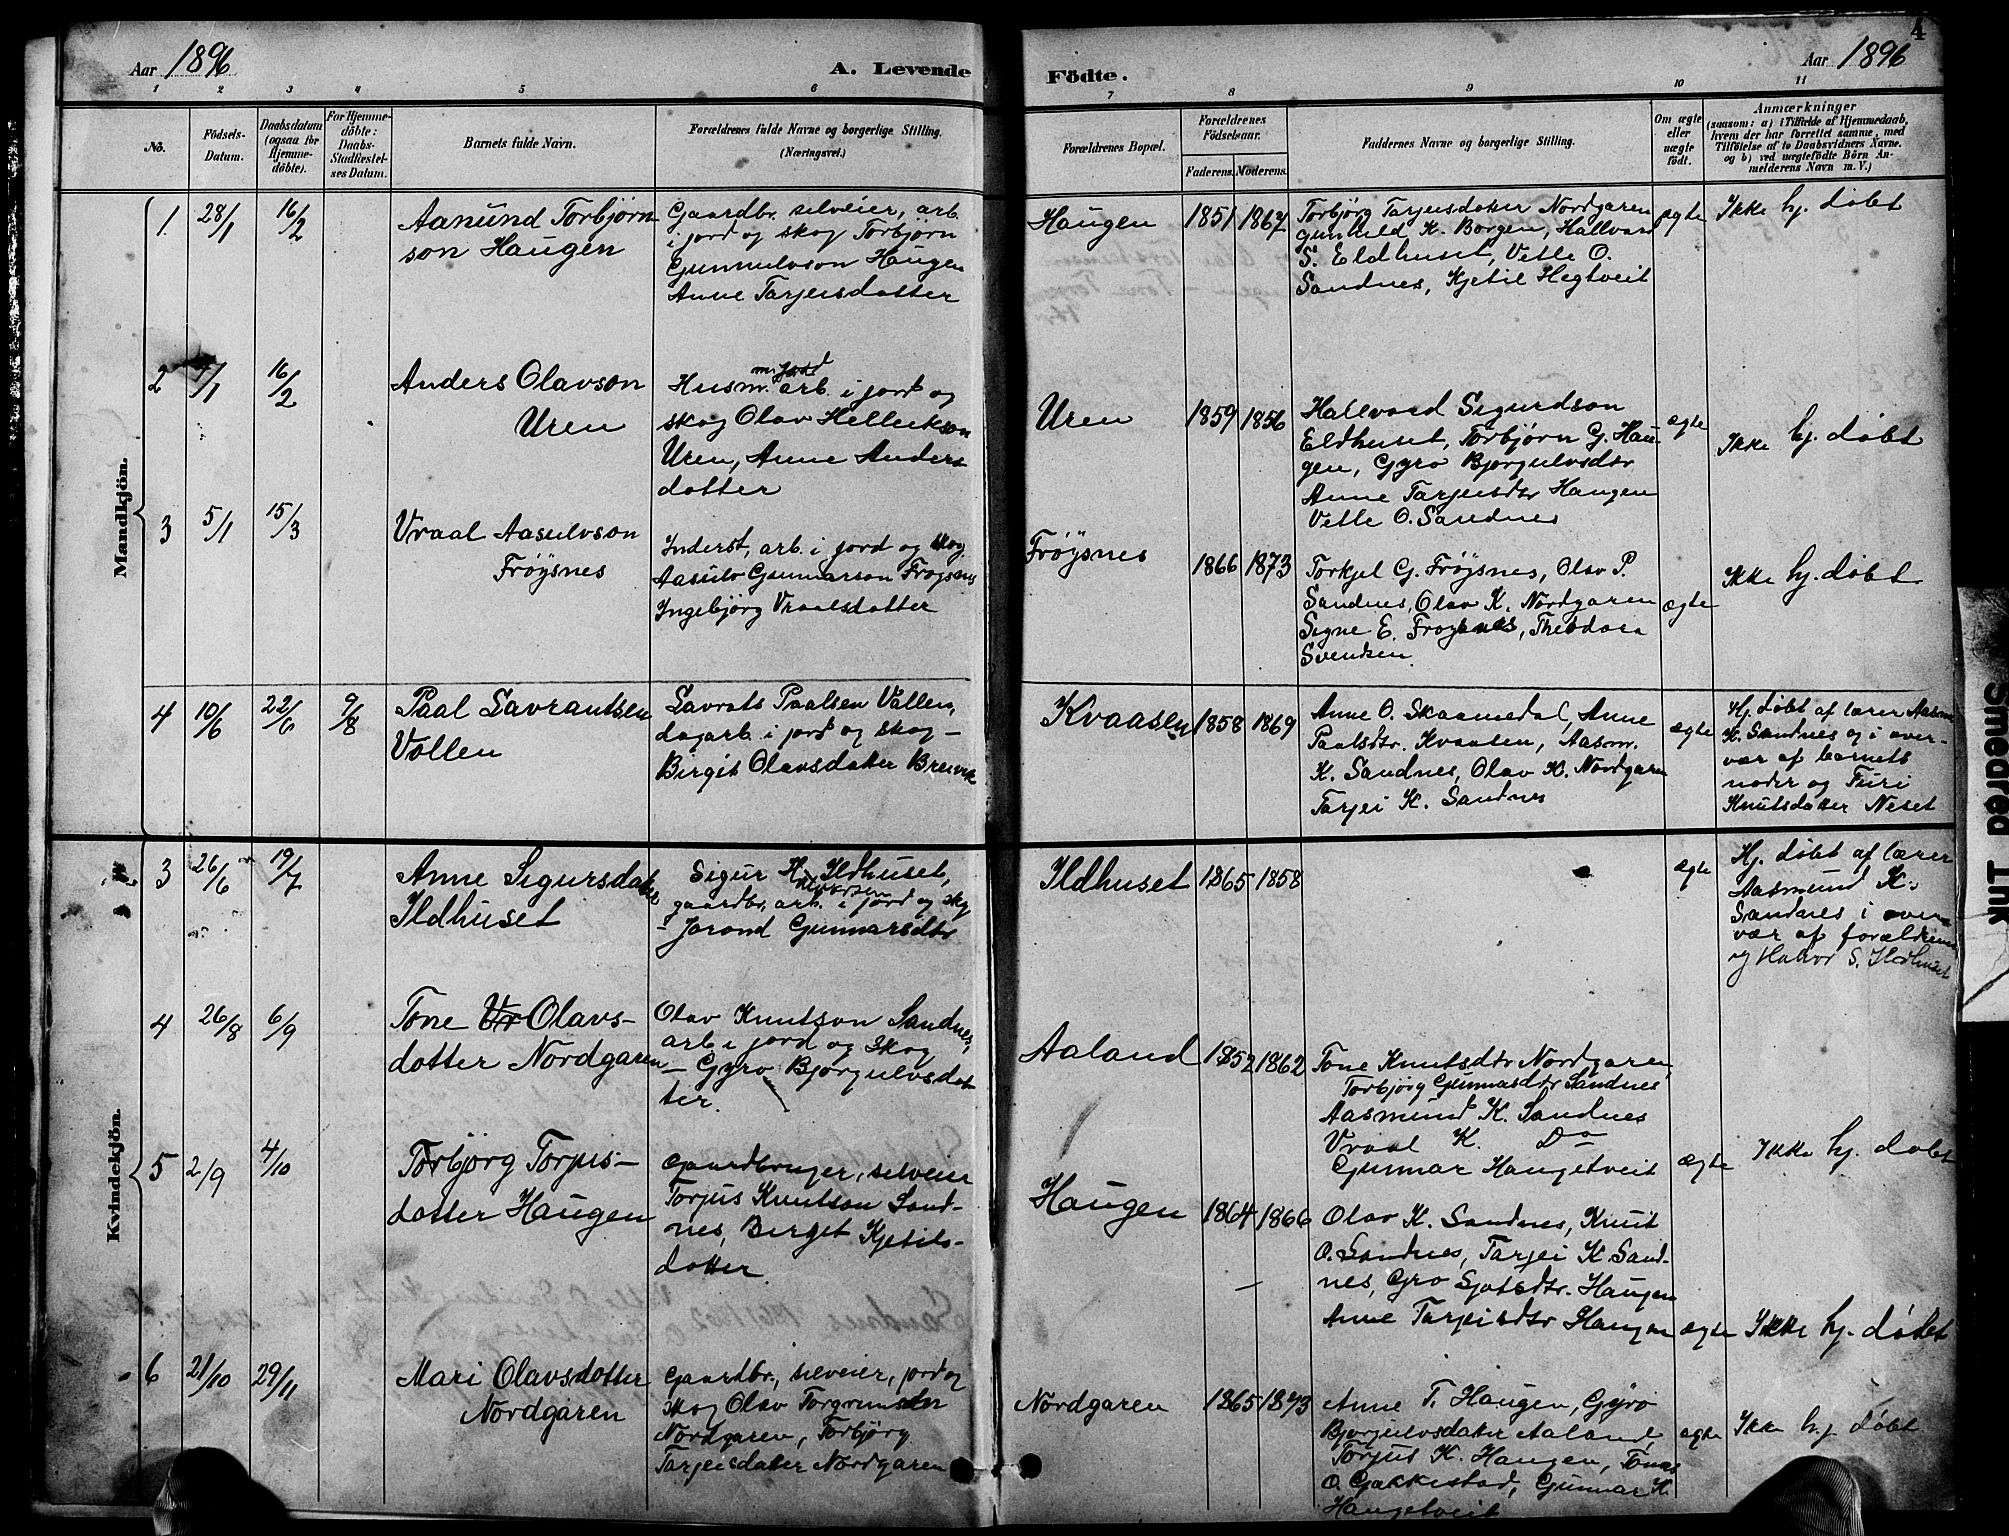 4
Aar 1896
A. Levende
Födte.
Aar 1896
1 2 3 4 5 6 7 8 9 10 11
No.
Födsels-
Datum.
Daabsdatum
(ogsaa for
Hjemme-
döbte).
For Hjemme-
döbte:
Daabs-
Stadfæstel-
ses Datum.
Barnets fulde Navn.
Forældrenes fulde Navne og borgerlige Stilling.
(Næringsvei.)
Forældrenes Bopæl.
Forældrenes
Födselsaar.
Faderens. Moderens.
Faddernes Navne og borgerlige Stilling.
Om ægte
eller
uægte
födt.
Anmærkninger
(saasom: a) i Tilfælde af Hjemmedaab,
hvem der har forrettet samme, med
Tilföielse af to Daabsvidners Navne.
og b) ved uægtefödte Börn An-
melderens Navn m. V.)
Mandkjön.
1. 28/1 16/2
Aanund Torbjørn
son Haugen
Gaardbr. selveier, arb.
i jord og skog Torbjörn
Gunnulvson Haugen
Anne Tarjeisdotter
Haugen 1851 1867
Torbjörg Tarjeisdatter Nordgaren
Gunhild K. Borgen, Hallvard
S. Eldhuset, Vetle O.
Sandnes, Kjetil Hegtveit
ægte
Ikke hj. døbt
2 7/1 16/2
Anders Olavson
Uren
m. jord
Husm. arb. i jord og
skog Olav Hellekson
Uren, Anne Anders
dotter
Uren 1859 1856
Hallvard Sigurdson
Eldhuset, Torbjørn G. Hau-
gen, Gyro Bjørgulvsdtr
Anne Tarjeisdtr Haugen
Vetle O. Sandnes
ægte
Ikke hj. døbt
3 5/1 15/3
Vraal Aasulvson
Frøysnes
Inderst, arb. i jord og skog.
Aasulv Gunnarson Frøysnes
Ingebjörg Vraalsdotter
Frøysnes 1866 1873
Torkjel G. Frøysnes, Olav P.
Sandnes, Olav K. Nordgaren
Signe E. Frøysnes, Theodora
Svendsen.
ægte
Ikke hj. døbt
4 10/6 22/6 9/8
Paal Lavrantsen
Vollen
Lavrats Paalsen Vallen,
dagarb. i jord og skog –
Birgit Olavsdatter Breivik
Kvaasen 1858 1869
Anne O. Skaamedal, Anne
Paalsdtr. Kvaasen, Aasm.
K. Sandnes, Olav K. Nordgaren
Tarjei K. Sandnes
ægte
Hj. døbt af lærer Aasm.
K. Sandnes og i over-
vær af barnets
moder og Turi
Knutsdatter Neset
Kvindekjön.
3 26/6 19/7
Anne Sigursdatter
Ildhuset
Sigur Halvorsen Ildhuset,
gaardbr. arb. i jord og skog
– Jorond Gunnarsdtr
Ildhuset 1865 1858
ægte
Hj. døbt af lærer
Aasmund K.
Sandnes i over-
vær af forældrene
og Halvor S. Ildhuset
4 26/8 6/9
Tone Vr Olavs-
dotter Nordgaren
Olav Knutson Sandnes,
arb. i jord og skog
– Gyro Bjørgulvsdot
ter.
Aaland 1852 1862
Tone Knutsdtr Nordgaren,
Torbjörg Gunnarsdtr Sandnes
Aasmund K. Sandnes
Vraal K. Do
Gunnar Haugetveit
ægte
Ikke hj. døbt
5 2/9 4/10
Torbjörg Torjus-
dotter Haugen
Gaardbruger, selveier
Torjus Knutson Sand-
nes, Birgit Kjetils-
dotter.
Haugen 1864 1866
Olav K. Sandnes, Knut
O. Sandnes, Tarjei K. Sand-
nes, Gro Sjotsdtr. Haugen
Anne Tarjeisdtr Haugen
ægte
Ikke hj. døbt
6 21/10 29/11
Mari Olavsdotter
Nordgaren
Gaardbr., selveier, jord og
skog Olav Torgrimsson
Nordgaren, Torbjörg
Tarjeisdatter Nordgaren
Nordgaren 1865 1873
Anne T. Haugen, Gyro
Bjørgulvsdatter Aaland,
Torjus K. Haugen, Tomas
O. Gakkestad, Gunnar K.
Haugetveit
ægte
Ikke hj. døbt
Smedred Ink